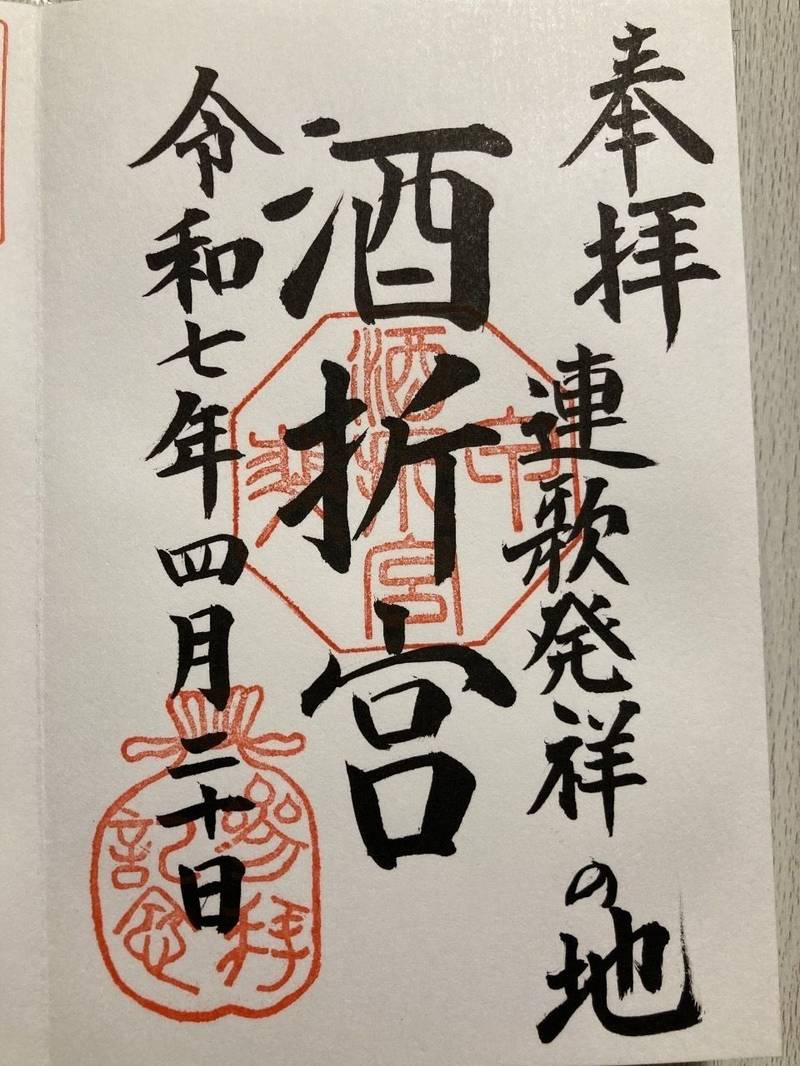 奉拝
連歌発祥の地
酒折宮
令和七年四月二十日
酒折宮
参拝
記念